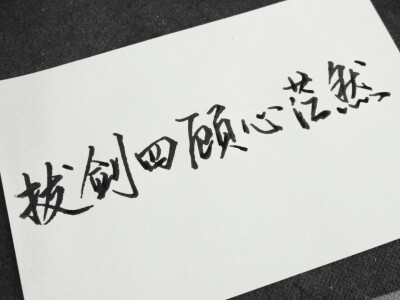 拔剑四顾心茫然